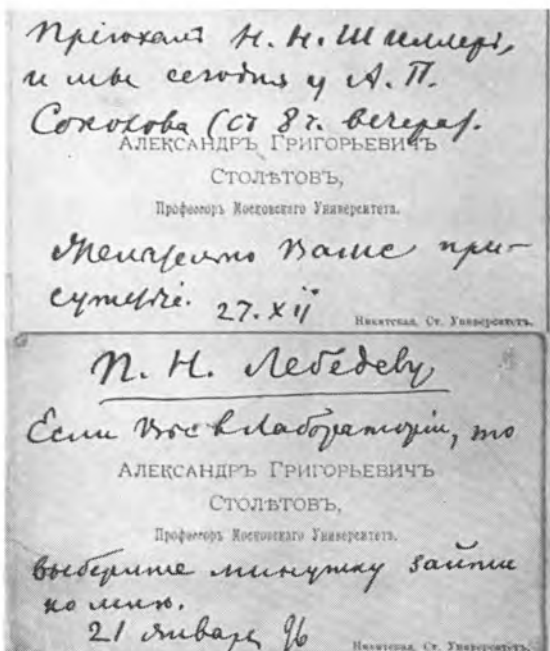 Пріѣхалъ Н. Н. Шиллеръ,
и мы сегодня у А. П.
Соколова (съ 8 ч. вечера).
АЛЕКСАНДРЪ ГРИГОРЬЕВИЧЪ
СТОЛѢТОВЪ,
Профессоръ Московскаго Университета.
Желательно Ваше при-
сутствіе. 27.XII
Никитская, Ст. Университетъ.
П. Н. Лебедеву
Если Вы въ Лабораторіи, то
АЛЕКСАНДРЪ ГРИГОРЬЕВИЧЪ
СТОЛѢТОВЪ,
Профессоръ Московскаго Университета.
выберите минутку зайти
ко мнѣ.
21 января 96
Никитская, Ст. Университетъ.